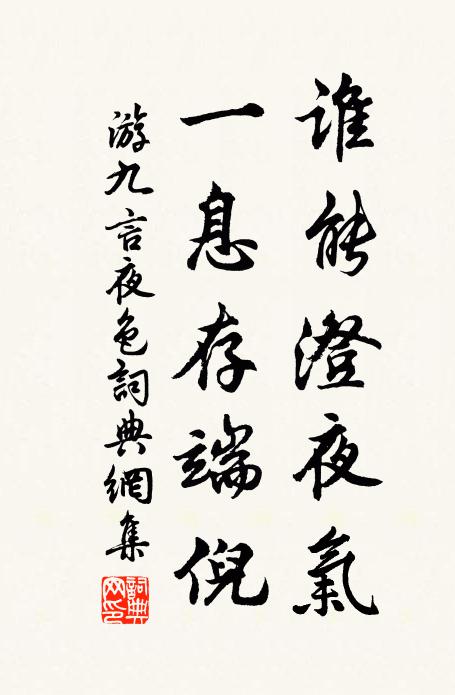 誰能澄夜氣
一息存端倪
游九言夜色詞典網集
詞典网印